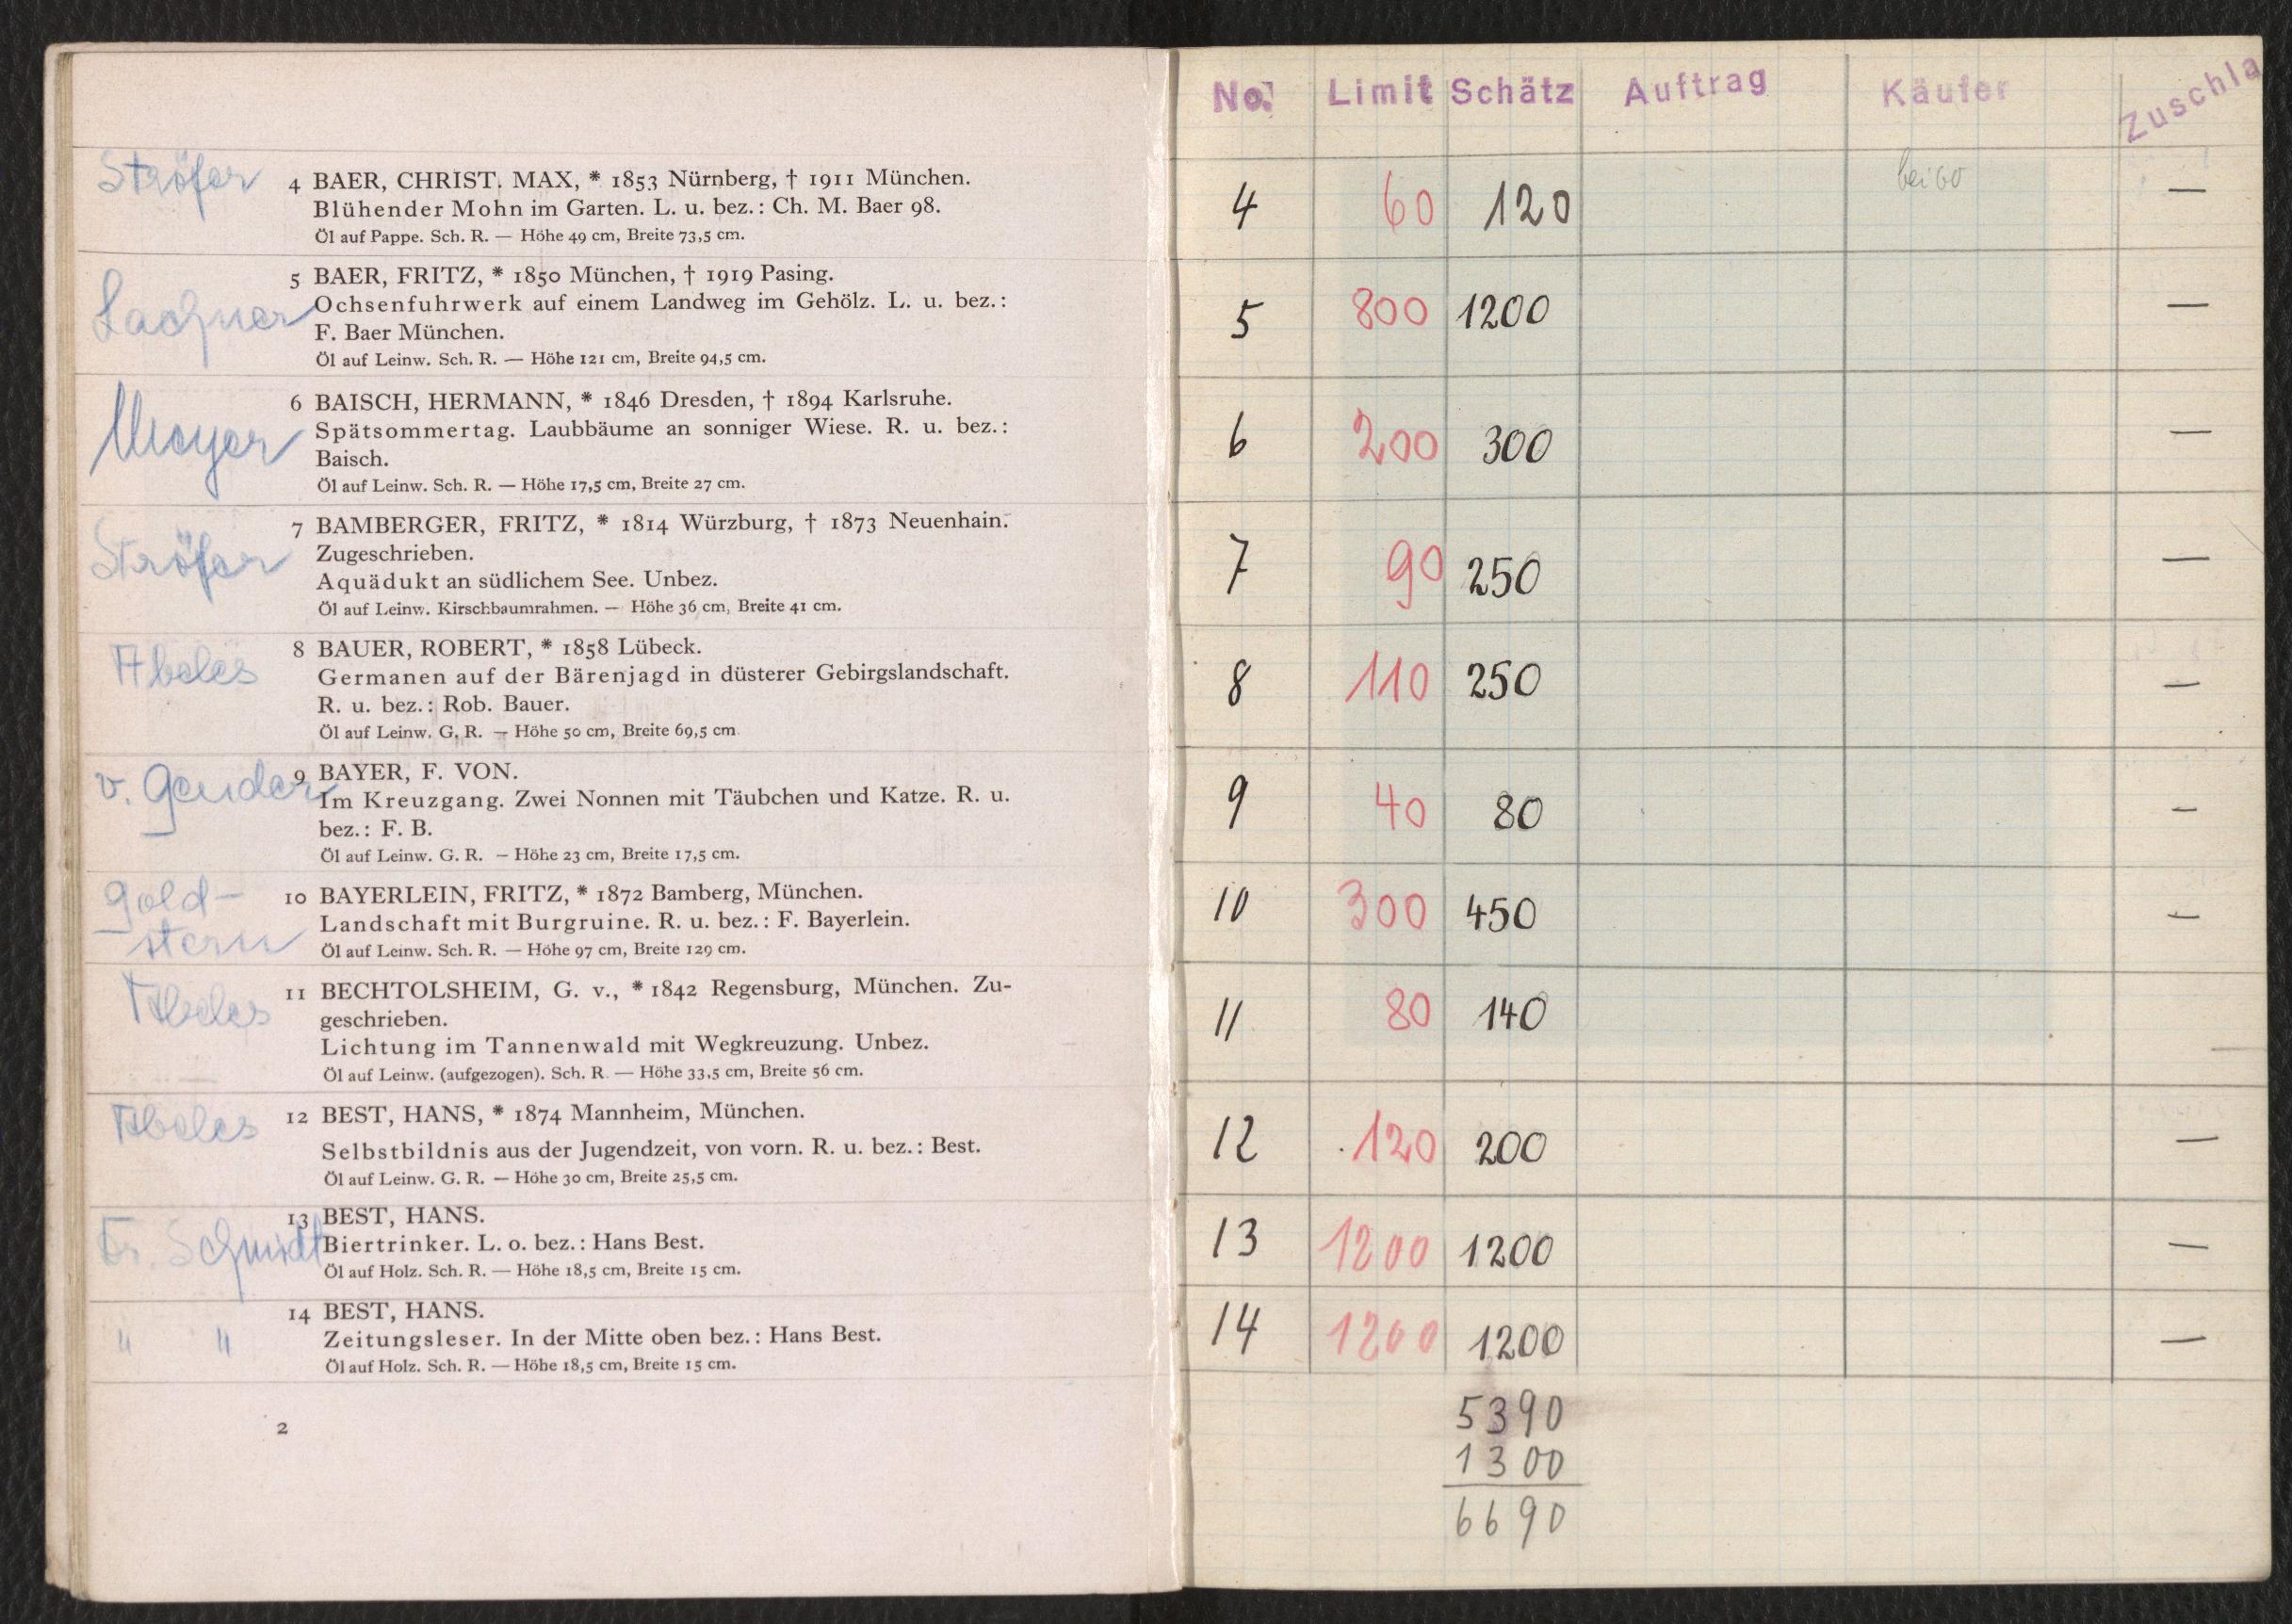 Ströfer
4 BAER, CHRIST. MAX, * 1853 Nürnberg, † 1911 München.
Blühender Mohn im Garten. L. u. bez.: Ch. M. Baer 98.
Öl auf Pappe. Sch. R. — Höhe 49 cm, Breite 73,5 cm.
Lachner
5 BAER, FRITZ, * 1850 München, † 1919 Pasing.
Ochsenfuhrwerk auf einem Landweg im Gehölz. L. u. bez.:
F. Baer München.
Öl auf Leinw. Sch. R. — Höhe 121 cm, Breite 94,5 cm.
Mayer
6 BAISCH, HERMANN, * 1846 Dresden, † 1894 Karlsruhe.
Spätsommertag. Laubbäume an sonniger Wiese. R. u. bez.:
Baisch.
Öl auf Leinw. Sch. R. — Höhe 17,5 cm, Breite 27 cm.
Ströfer
7 BAMBERGER, FRITZ, * 1814 Würzburg, † 1873 Neuenhain.
Zugeschrieben.
Aquädukt an südlichem See. Unbez.
Öl auf Leinw. Kirschbaumrahmen. — Höhe 36 cm, Breite 41 cm.
Abeles
8 BAUER, ROBERT, * 1858 Lübeck.
Germanen auf der Bärenjagd in düsterer Gebirgslandschaft.
R. u. bez.: Rob. Bauer.
Öl auf Leinw. G. R. — Höhe 50 cm, Breite 69,5 cm.
v.
9 BAYER, F. VON.
Im Kreuzgang. Zwei Nonnen mit Täubchen und Katze. R. u.
bez.: F. B.
Öl auf Leinw. G. R. — Höhe 23 cm, Breite 17,5 cm.
Gold-
stern
10 BAYERLEIN, FRITZ, * 1872 Bamberg, München.
Landschaft mit Burgruine. R. u. bez.: F. Bayerlein.
Öl auf Leinw. Sch. R. — Höhe 97 cm, Breite 129 cm.
Abeles
11 BECHTOLSHEIM, G. v., * 1842 Regensburg, München. Zu-
geschrieben.
Lichtung im Tannenwald mit Wegkreuzung. Unbez.
Öl auf Leinw. (aufgezogen). Sch. R. — Höhe 33,5 cm, Breite 56 cm.
Abeles
12 BEST, HANS, * 1874 Mannheim, München.
Selbstbildnis aus der Jugendzeit, von vorn. R. u. bez.: Best.
Öl auf Leinw. G. R. — Höhe 30 cm, Breite 25,5 cm.
Fr. Schmidt
13 BEST, HANS.
Biertrinker. L. o. bez.: Hans Best.
Öl auf Holz. Sch. R. — Höhe 18,5 cm, Breite 15 cm.
" "
14 BEST, HANS.
Zeitungsleser. In der Mitte oben bez.: Hans Best.
Öl auf Holz. Sch. R. — Höhe 18,5 cm, Breite 15 cm.
2
No. Limit Schätz Auftrag Käufer Zuschla
4 60 120 bei 60 —
5 800 1200 —
6 200 300 —
7 90 250 —
8 110 250 —
9 40 80 —
10 300 450 —
11 80 140 —
12 120 200 —
13 1200 1200 —
14 1200 1200 —
5390
1300
6690